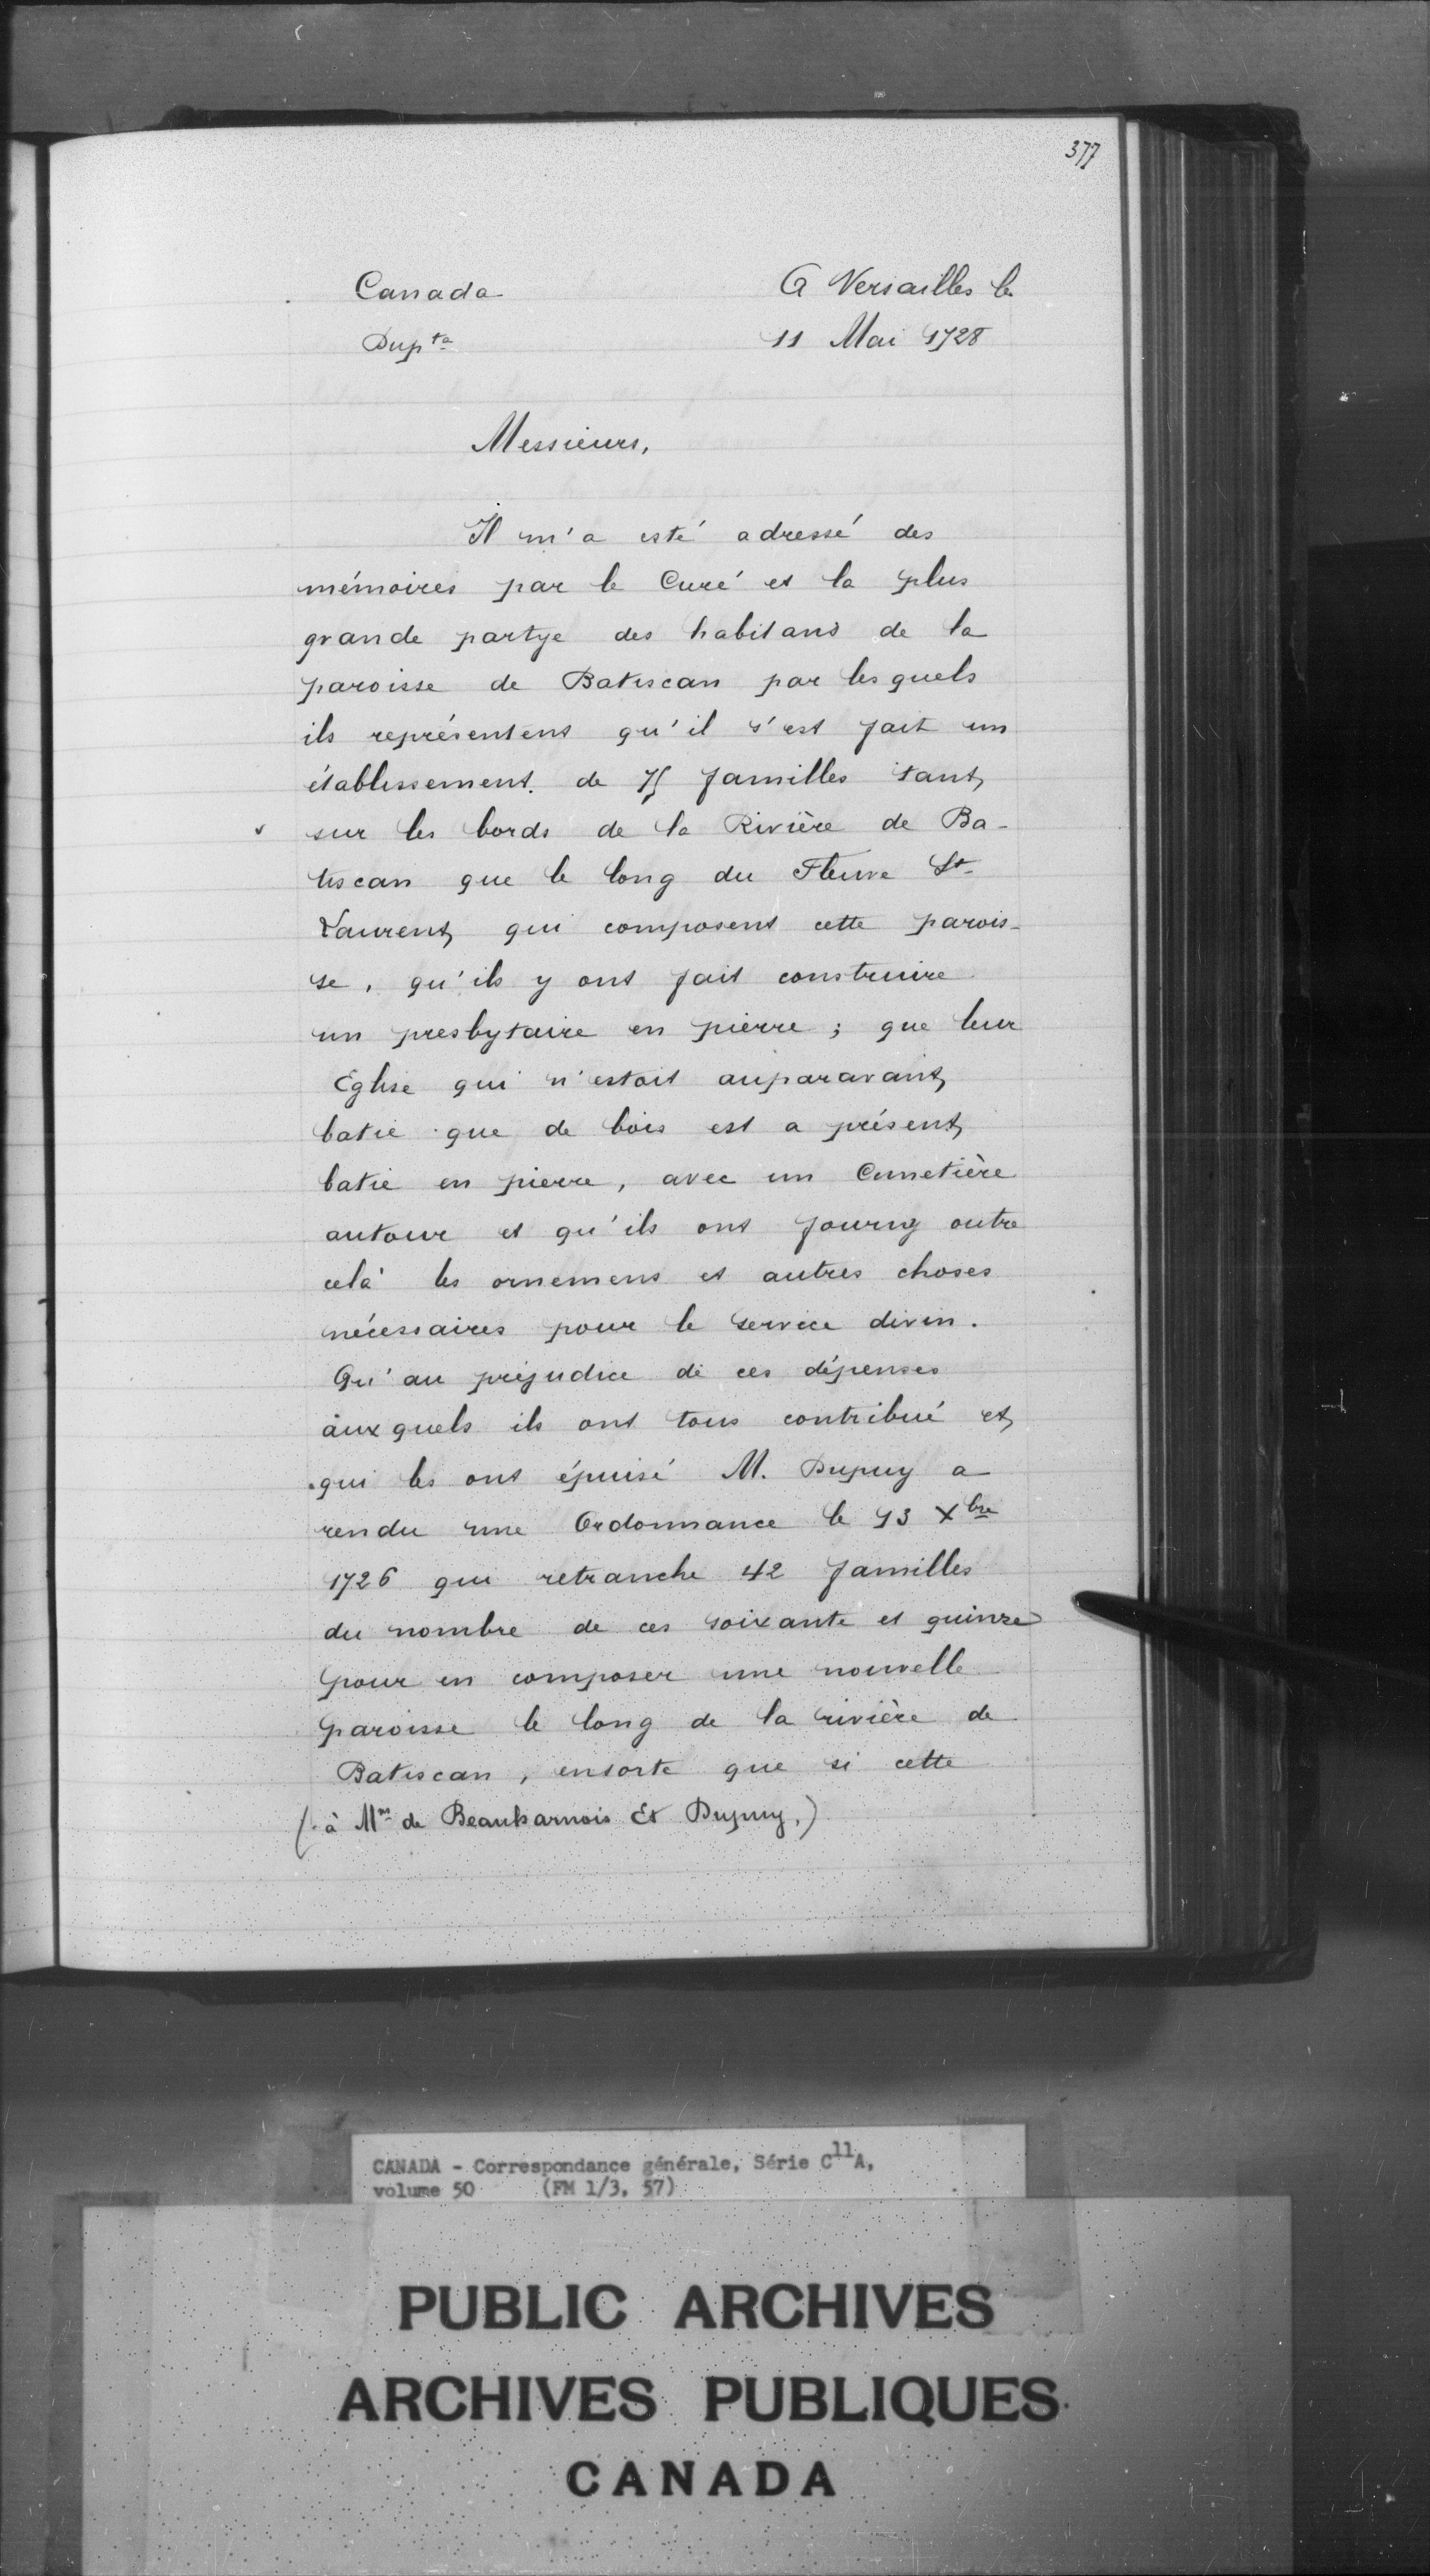 377
Canada
A Versailles le
Dupta
11 Mai 1728
Messieurs,
Il m'a esté adressé des
mémoires par le Curé et la plus
grande partye des habitans de la
paroisse de Batiscan par lesquels
ils représentent qu'il s'est fait un
établissement de 75 familles tant
sur les bords de la Rivière de Ba-
tiscan que le long du Fleuve St-
Laurent qui composent cette parois-
se, qu'ils y ont fait construire
un presbytaire en pierre ; que leur
Eglise qui n'estoit auparavant
batie que de bois est a présent
batie en pierre, avec un Cimetière
autour et qu'ils ont fourny outre
celà les ornemens et autres choses
nécessaires pour le service divin.
Qu'au préjudice de ces dépenses
auxquels ils ont tous contribué et
qui les ont épuisé M. Dupuy a
rendu une Ordonnance le 13 Xbre
1726 qui retranche 42 familles
du nombre de ces soixante et quinze
pour en composer une nouvelle
paroisse le long de la rivière de
Batiscan, ensorte que si cette
(à Mrs de Beauharnois Et Dupuy.)
CANADA - Correspondance générale, Série C11A,
volume 50 (FM 1/3, 57)
PUBLIC ARCHIVES
ARCHIVES PUBLIQUES
CANADA